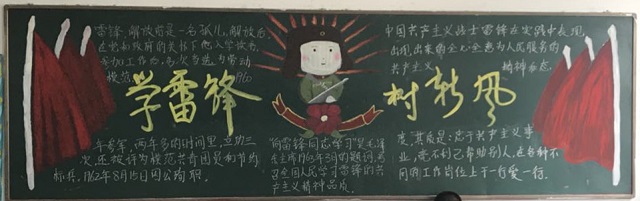 雷锋，解放前是一名孤儿，解放后
在党和政府的关怀下他入学读书，
参加工作后，多次当选为劳动
模范 1960
学雷锋
年参军，两年多的时间里，立功三
次，还被评为模范共青团员和节约
标兵，1962年8月15日因公殉职。
向雷锋同志学习是毛泽
东主席1963年3月的题词，号
召全国人民学习雷锋的共
产主义精神品质。
中国共产主义战士雷锋在实践中表现
出现出来的全心全意为人民服务的
共产主义 精神和态
树新风
度，其质是：忠于共产主义事
业，毫不利己帮助别人，在各种不
同的工作岗位上干一行爱一行。